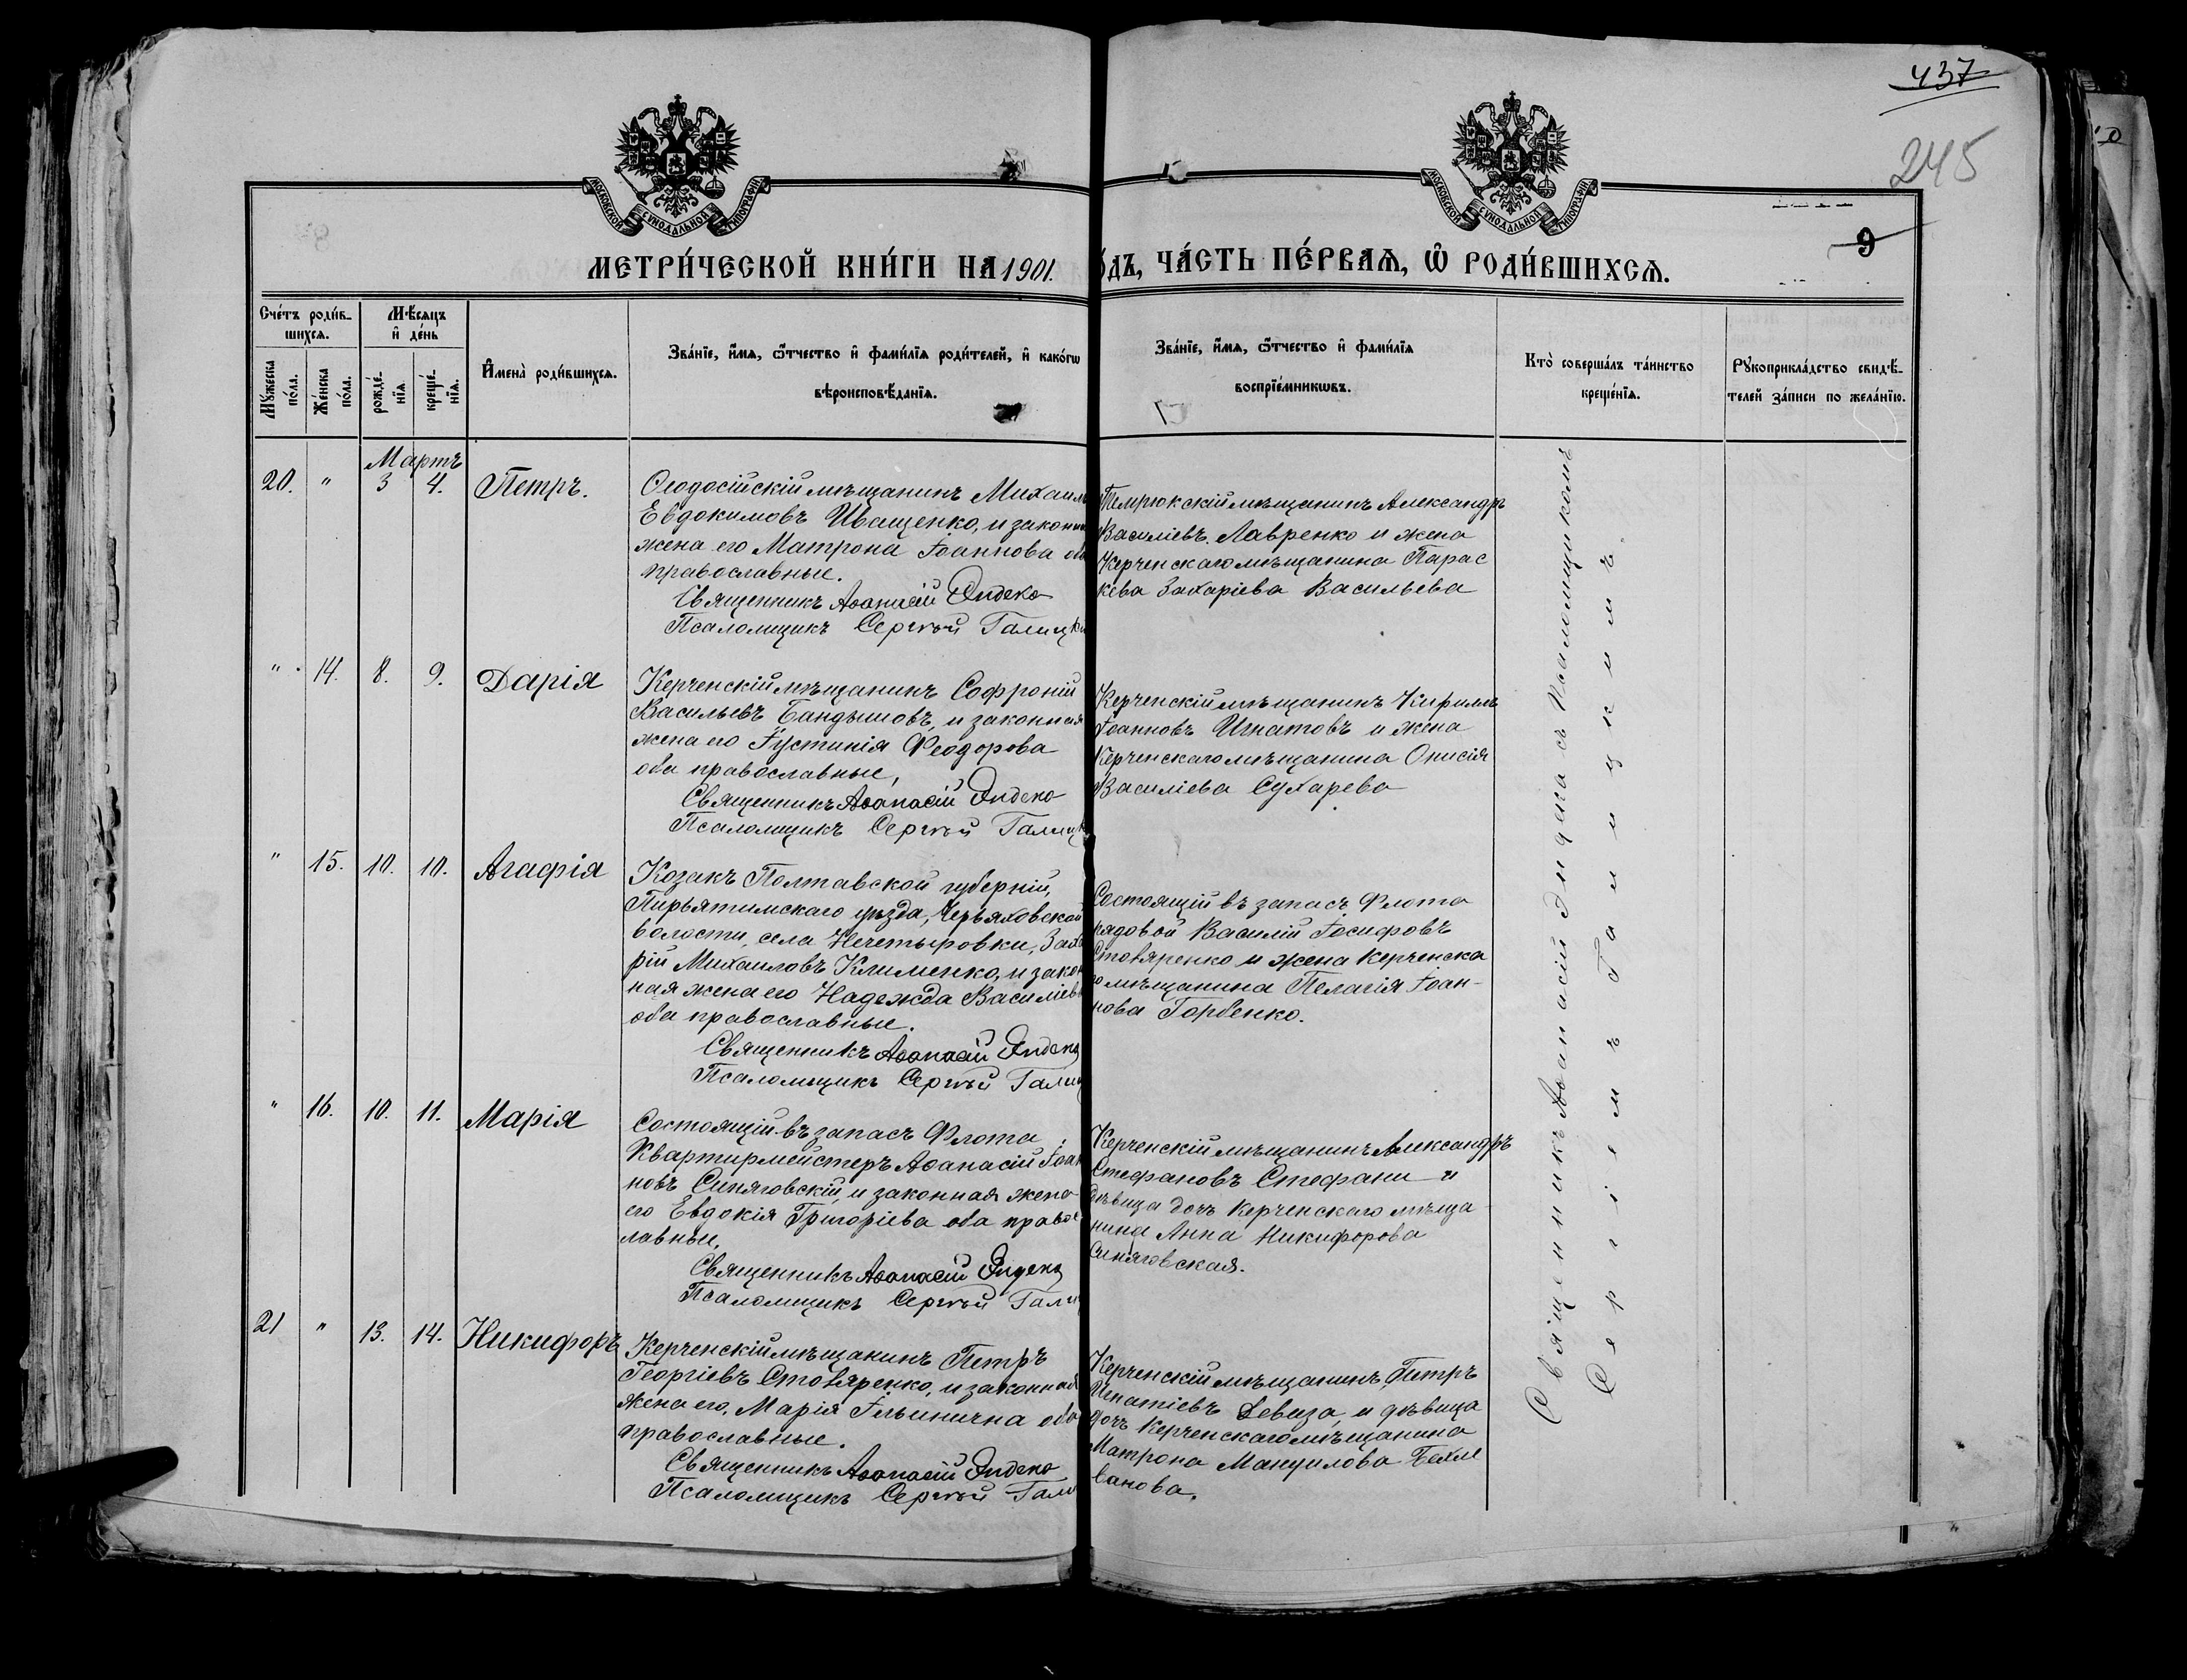 437
245
9
МОСКОВСКОЙ СѴНОДАЛЬНОЙ ТИПОГРАФІИ
МОСКОВСКОЙ СѴНОДАЛЬНОЙ ТИПОГРАФІИ
МЕТРИ́ЧЕСКОЙ КНИ́ГИ НА 1901. ѻ́дъ, ЧА́СТЬ ПЕ́РВАѦ, Ѽ РОДИ́ВШИХСѦ.
Сче́тъ роди́в-
шихсѧ.
Мꙋ́жеска по́ла.
Же́нска по́ла.
Мѣ́сѧцъ и҆ де́нь
рожде́-нїѧ
креще́-нїѧ.
И҆мена̀ роди́вшихсѧ.
Зва́нїе, и҆́мѧ, ѻ҆́тчество и҆ фами́лїѧ роди́телей, и҆ како́гѡ
вѣроисповѣ́данїѧ.
Зва́нїе, и҆́мѧ, ѻ҆́тчество и҆ фами́лїѧ
воспрїе́мникѡвъ.
Кто̀ соверша́лъ та́инство
креще́нїѧ.
Рꙋкоприкла́дство свидѣ́-
телей за́писи по жела́нїю.
Мартъ
20. " 3 4. Петръ.
Ѳеодосійскій мѣщанинъ Михаил
Евдокимовъ Иващенко, и законн
жена его Матрона Іоаннова об
православные.
Священникъ Аѳанасій Эндека
Псаломщикъ Сергѣй Галицкі
Темрюкскій мѣщанинъ Александръ
Василіевъ Лавренко и жена
Керченскаго мѣщанина Парас
кева Захаріева Васильева
" 14. 8. 9. Дарія
Керченскій мѣщанинъ Софроній
Васильевъ Бандышовъ, и законная
жена его Іустинія Ѳеодорова
оба православные,
Священникъ Аѳанасій Эндека
Псаломщикъ Сергѣй Галицк
Керченскій мѣщанинъ Кириллъ
Іоанновъ Игнатовъ и жена
Керченскаго мѣщанина Онисія
Василіева Сухарева
" 15. 10. 10. Агафія
Козакъ Полтавской губерній,
Пирьятимскаго уѣзда, Черьяховской
волости, села Нечетыровки, Заха
рій Михаиловъ Клименко, и закон
ная жена его Надежда Василіев
оба православные.
Священникъ Аѳанасій Эндека
Псаломщикъ Сергѣй Галиц
Состоящій въ запасѣ Флота
рядовой Василій Іосифовъ
Столяренко и жена Керченска
го мѣщанина Пелагія Іоан-
нова Горбенко.
" 16. 10. 11. Марія
Состоящій въ запасѣ Флота
Квартирмейстеръ Аѳанасій Іоан
новъ Синяговскій, и законная жена
его Евдокія Григоріева оба правос
лавные.
Священникъ Аѳанасій Эндека
Псаломщикъ Сергѣй Галиц
Керченскій мѣщанинъ Александръ
Стефановъ Стефани и
дѣвица дочь Керченскаго мѣща-
нина Анна Никифорова
Синяговская.
21 " 13. 14. Никифоръ
Керченскій мѣщанинъ Петръ
Георгіевъ Столяренко, и законная
жена его, Марія Ильинична оба
православные.
Священникъ Аѳанасій Эндека
Псаломщикъ Сергѣй Гали
Керченскій мѣщанинъ Петръ
Игнатіевъ Девиза и дѣвица
дочь Керченскаго мѣщанина
Матрона Мануилова Бахме
ванова.
Священникъ Аѳанасій Эндека съ Псаломщикомъ
Сергіемъ Галицкимъ.